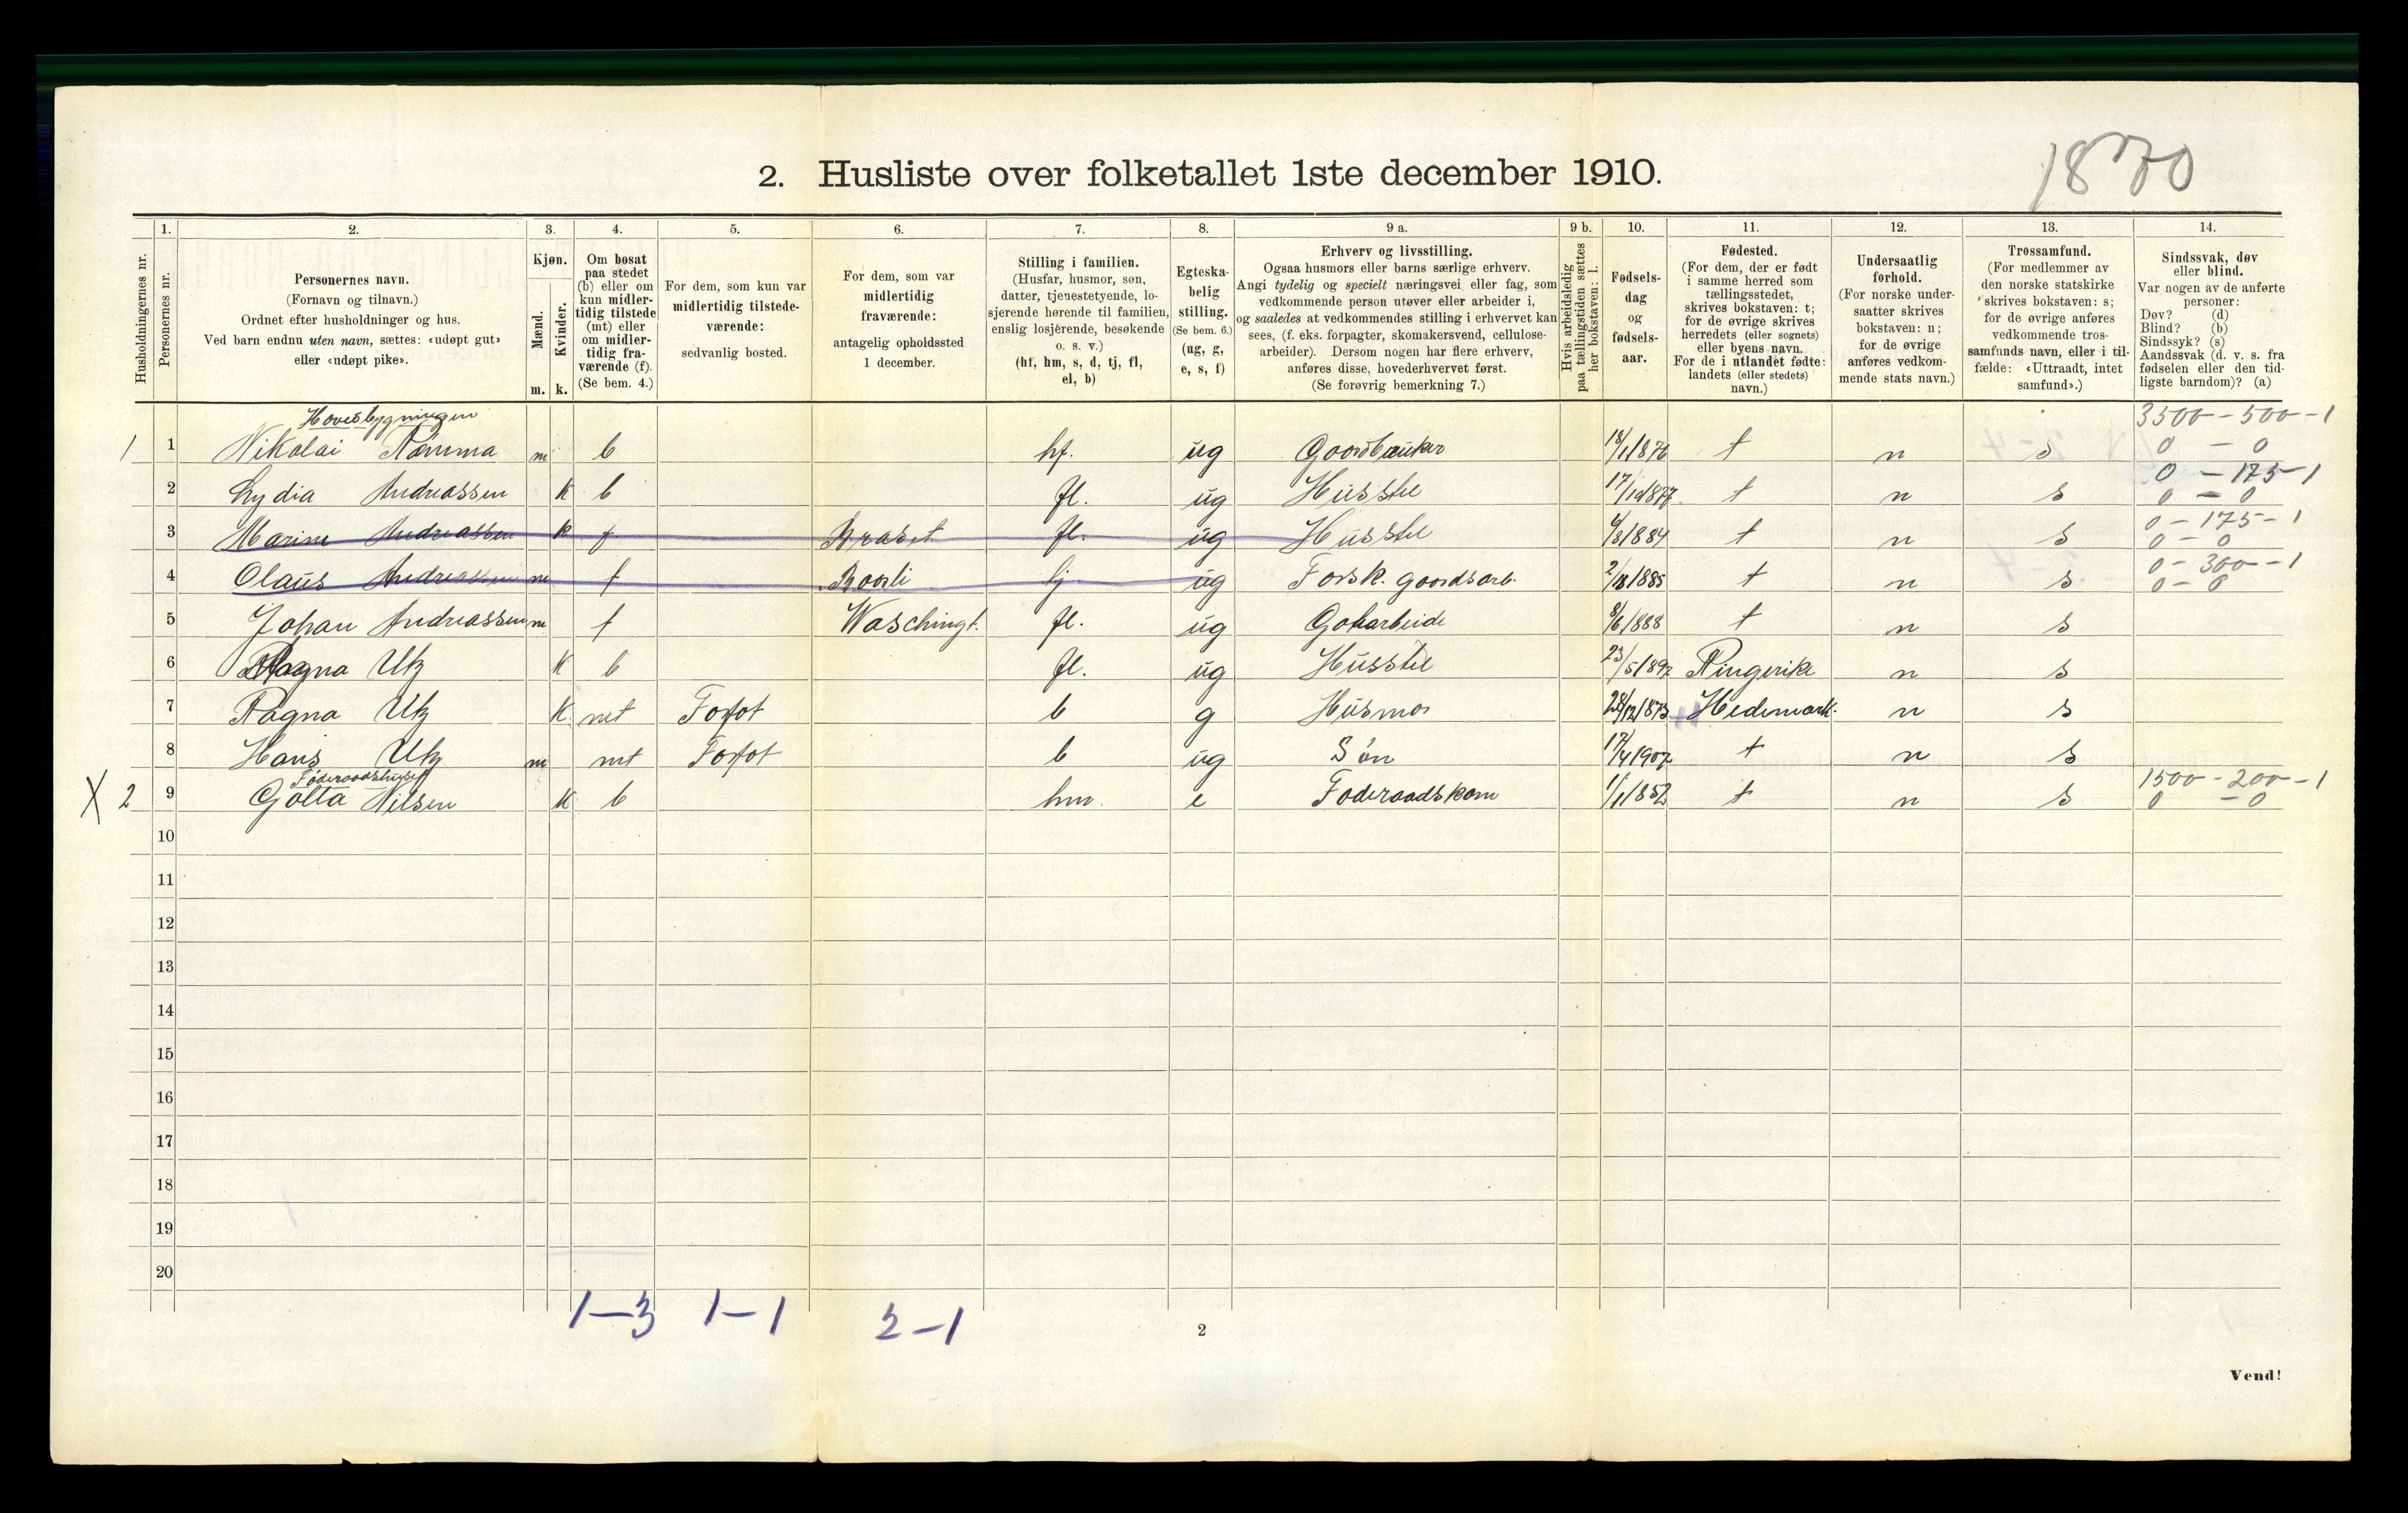 1870
2. Husliste over folketallet 1ste december 1910.
Husholdningernes nr.
1.
Personernes nr.
2.
Personernes navn.
(Fornavn og tilnavn.)
Ordnet efter husholdninger og hus.
Ved barn endnu uten navn, sættes: «udøpt gut»
eller «udøpt pike».
3.
Kjøn.
Mænd.
m.
Kvinder.
k.
4.
Om bosat
paa stedet
(b) eller om
kun midler-
tidig tilstede
(mt) eller
om midler-
tidig fra-
værende (f).
(Se bem. 4.)
5.
For dem, som kun var
midlertidig tilstede-
værende:
sedvanlig bosted.
6.
For dem, som var
midlertidig
fraværende:
antagelig opholdssted
1 december.
7.
Stilling i familien.
(Husfar, husmor, søn,
datter, tjenestetyende, lo-
sjerende hørende til familien,
enslig losjerende, besøkende
o. s. v.)
(hf, hm, s, d, tj, fl,
el, b)
8.
Egteska-
belig
stilling.
(Se bem. 6.)
(ug, g,
e, s, f)
9 a.
Erhverv og livsstilling.
Ogsaa husmors eller barns særlige erhverv.
Angi tydelig og specielt næringsvei eller fag, som
vedkommende person utøver eller arbeider i,
og saaledes at vedkommendes stilling i erhvervet kan
sees, (f. eks. forpagter, skomakersvend, cellulose-
arbeider). Dersom nogen har flere erhverv,
anføres disse, hovederhvervet først.
(Se forøvrig bemerkning 7.)
9 b.
Hvis arbeidsledig
paa tællingstiden sættes
her bokstaven: l.
10.
Fødsels-
dag
og
fødsels-
aar.
11.
Fødested.
(For dem, der er født
i samme herred som
tællingsstedet,
skrives bokstaven: t;
for de øvrige skrives
herredets (eller sognets)
eller byens navn.
For de i utlandet fødte:
landets (eller stedets)
navn.)
12.
Undersaatlig
forhold.
(For norske under-
saatter skrives
bokstaven: n;
for de øvrige
anføres vedkom-
mende stats navn.)
13.
Trossamfund.
(For medlemmer av
den norske statskirke
skrives bokstaven: s;
for de øvrige anføres
vedkommende tros-
samfunds navn, eller i til-
fælde: «Uttraadt, intet
samfund».)
14.
Sindssvak, døv
eller blind.
Var nogen av de anførte
personer:
Døv? (d)
Blind? (b)
Sindssyk? (s)
Aandssvak (d. v. s. fra
fødselen eller den tid-
ligste barndom)? (a)
Hovedbygningen 3500 - 500 - 1
1 1 Nikolai Rømma m b hf. ug Goardbruker 18/1 1876 t n s 0 - 0
0 - 175 - 1
2 Lydia Andreassen k b fl. ug Husstel 17/10 1877 t n s 0 - 0
0 - 175 - 1
3 Marine Andreassen k f Braset fl. ug Husstel 1884 t n s 0 - 0
0 - 300 - 1
4 Olaus Andreassen m f ug Forsk. goardsarb. 1885 t n s 0 - 0
5 Johan Andreassen m f Waschingt. fl. ug 8/6 1888 t n s
6 Magna Utz k b fl. ug Husstel 23/5 1892 Ringerike n s
7 Ragna Utz k mt Fosfot b g Husmor 28/12 1873 Hedemark. n s
8 Hans Utz m mt Fosfot b ug Søn 17/4 1907 t n s
Føderaadshuset 1500 - 200 - 1
X 2 9 Golta Nilsen k b hm. e Føderaadskone 1/1 1852 t n s 0 - 0
10
11
12
13
14
15
16
17
18
19
20
1-3 1-1 2-1
2
Vend!